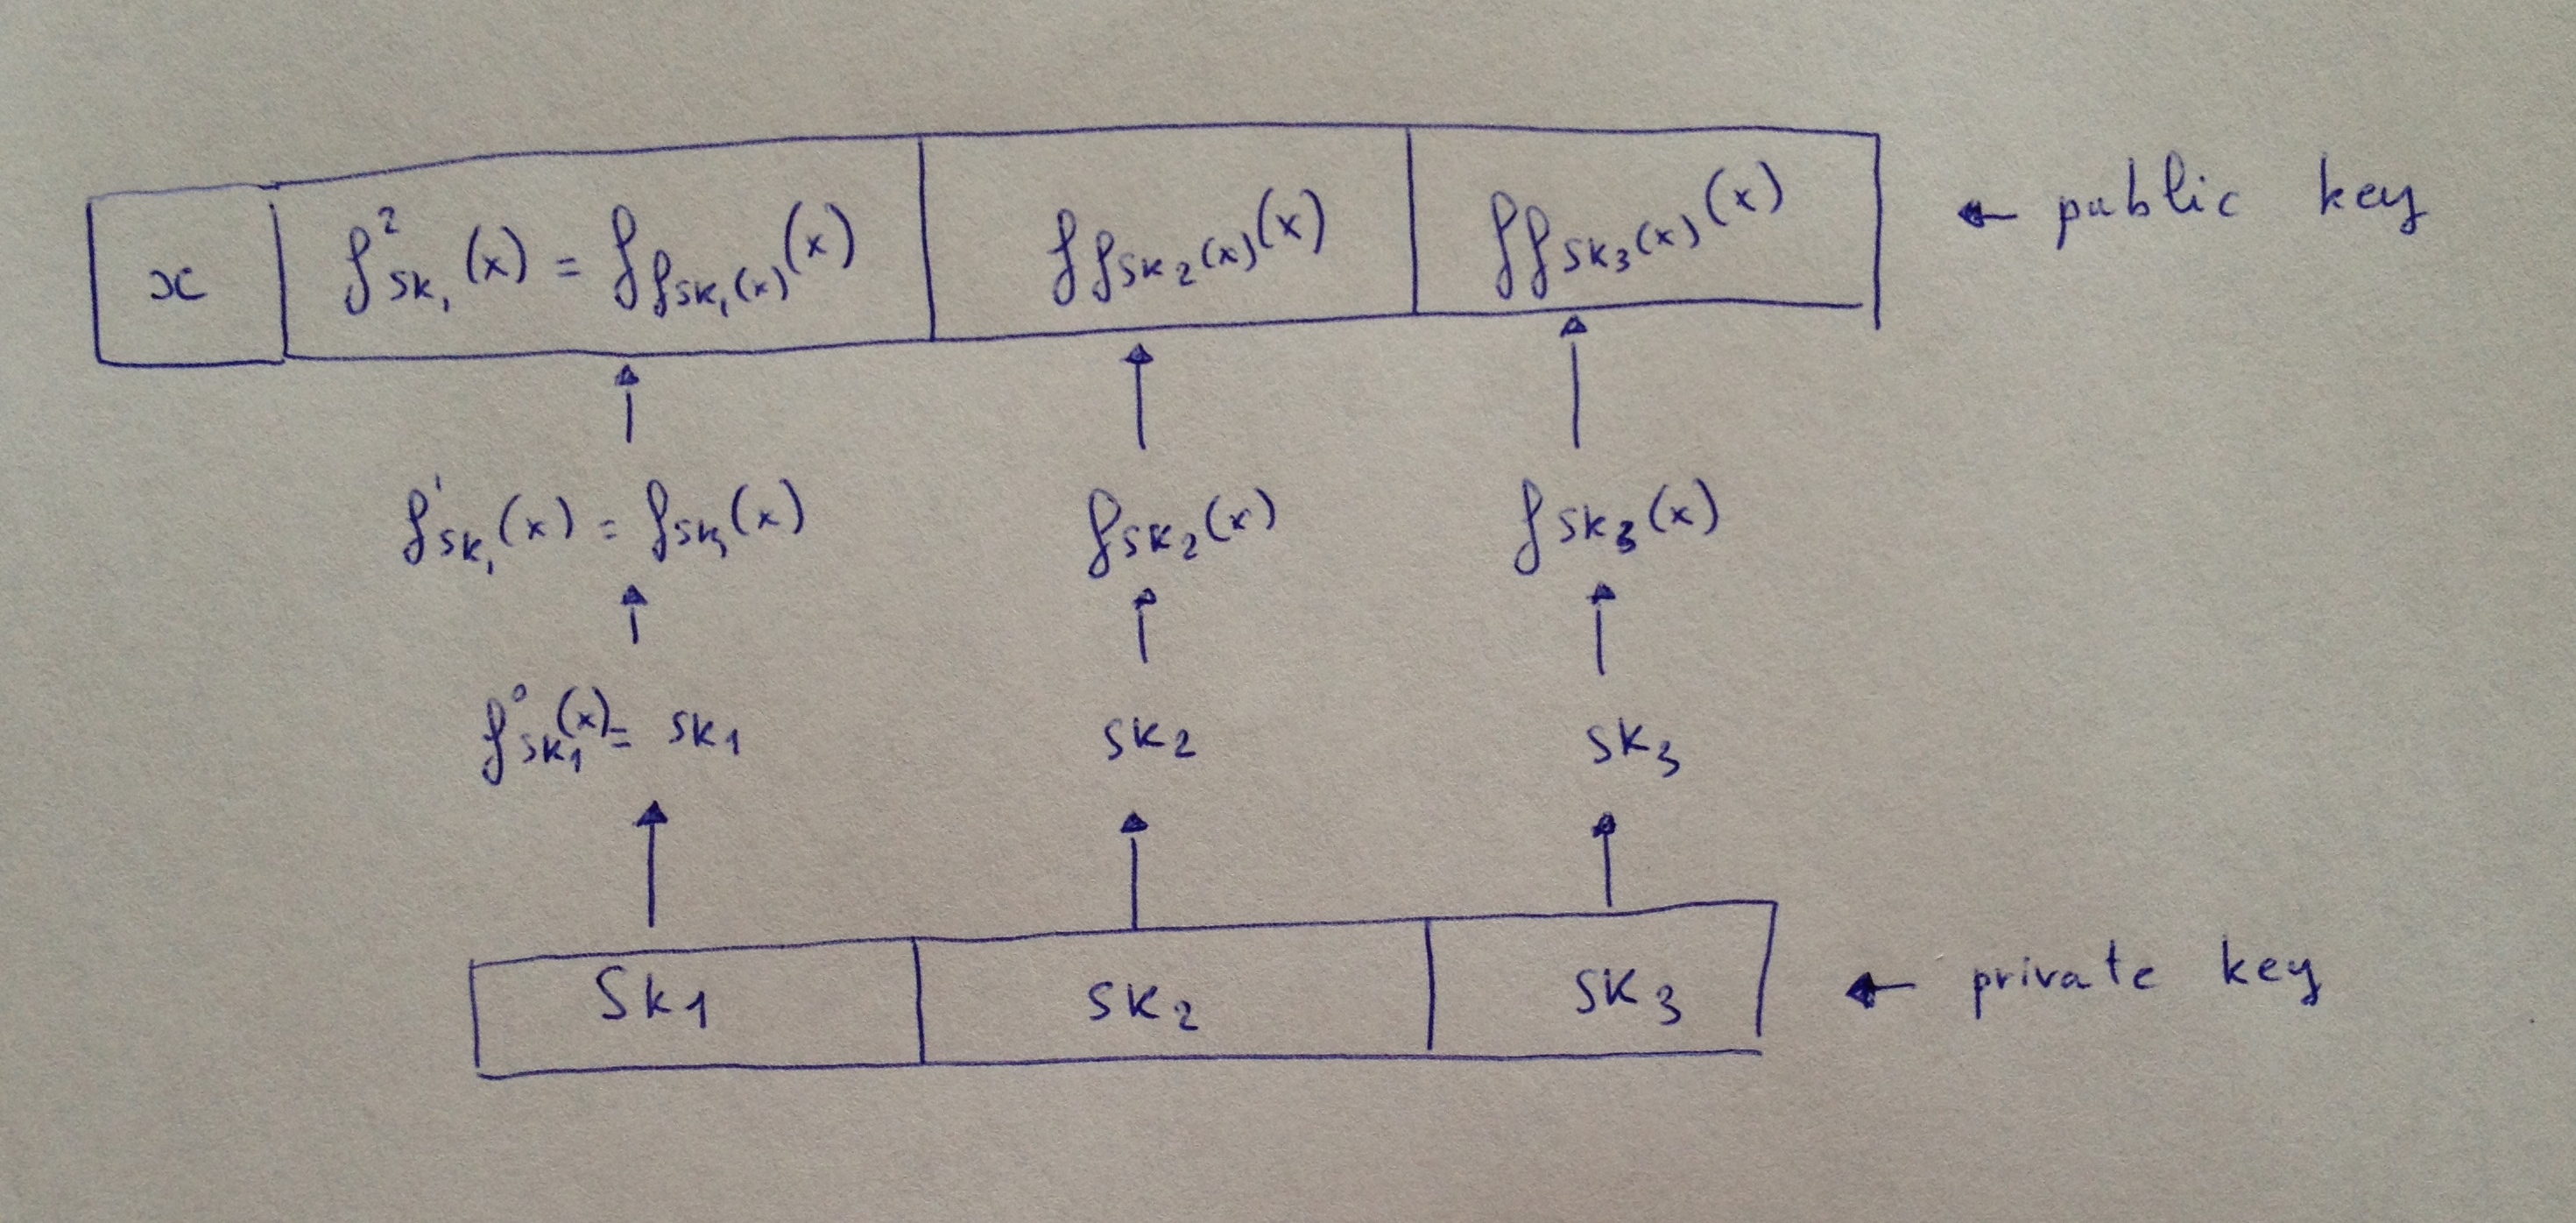 x f²sk₁(x) = f fsk₁(x)(x) f fsk₂(x)(x) f fsk₃(x)(x) ← public key
f¹sk₁(x) = fsk₁(x) fsk₂(x) fsk₃(x)
f⁰sk₁(x) = sk₁ sk₂ sk₃
Sk₁ sk₂ sk₃ ← private key